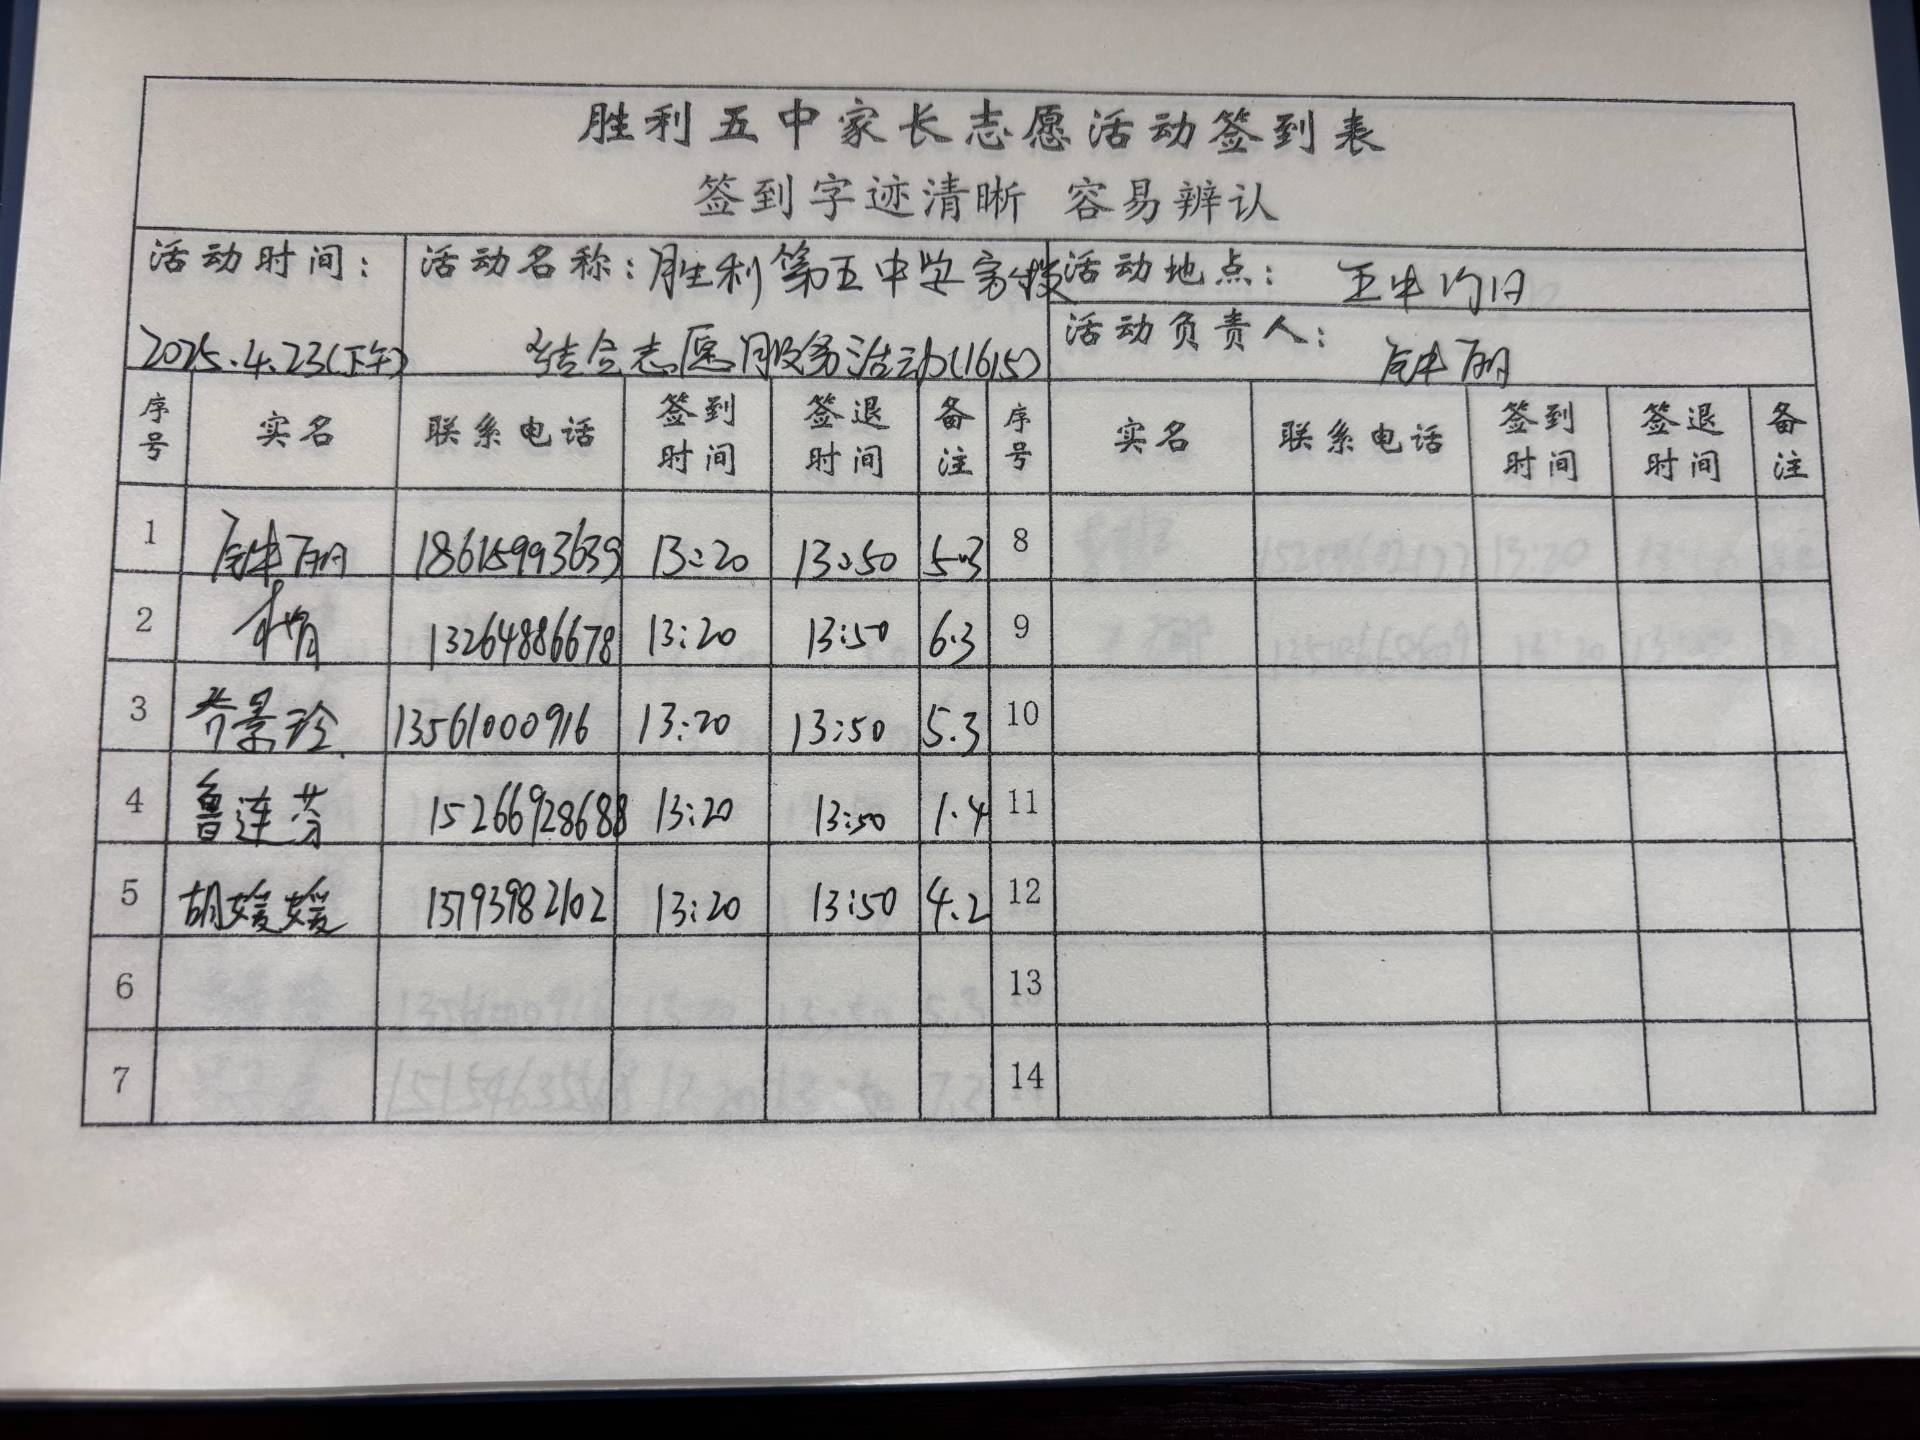 胜利五中家长志愿活动签到表
签到字迹清晰 容易辨认
活动时间： 2025.4.23(下午)
活动名称：胜利第五中学家校
结合志愿服务活动(1615)
活动地点： 五中门口
活动负责人： 丽
序号 实名 联系电话 签到时间 签退时间 备注 序号 实名 联系电话 签到时间 签退时间 备注
1 丽 18615993639 13:20 13:50 5.3 8
2 13264886678 13:20 13:50 6.3 9
3 乔景玲 13561000916 13:20 13:50 5.3 10
4 鲁连芬 15266928688 13:20 13:50 1.4 11
5 胡媛媛 13793982102 13:20 13:50 4.2 12
6 13
7 14